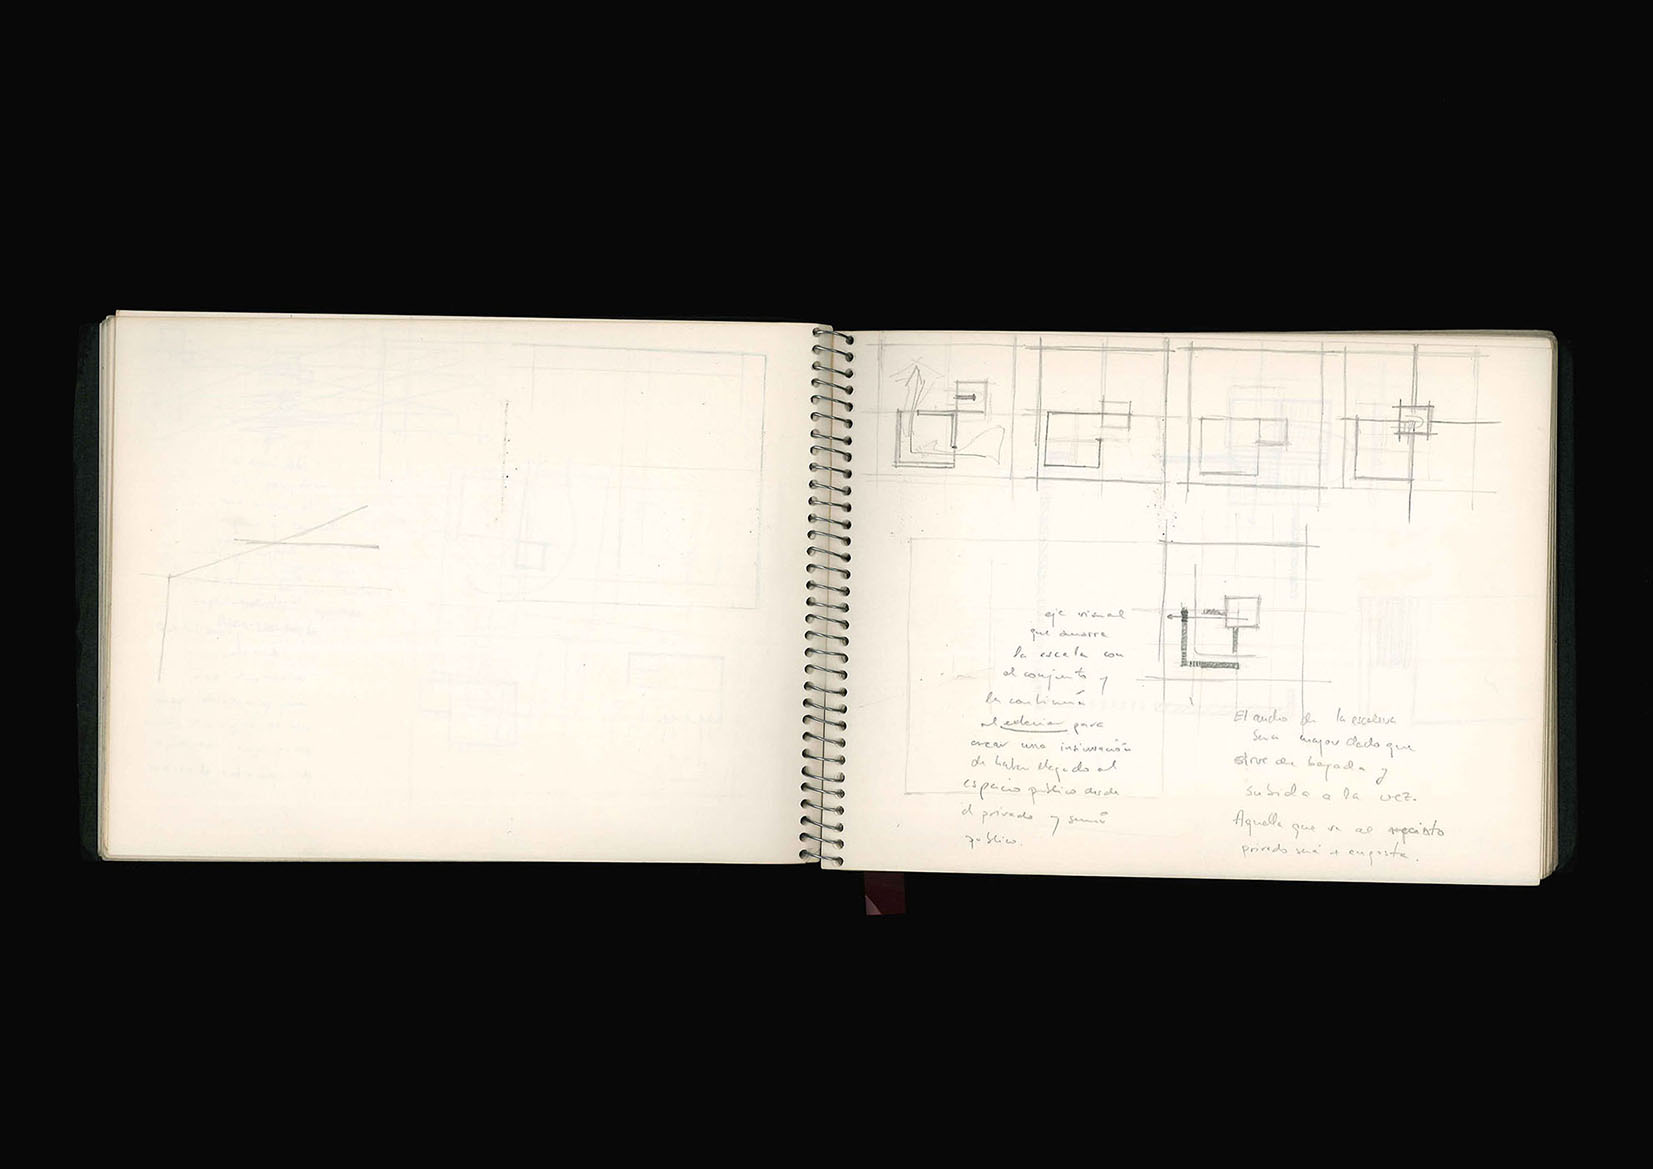 eje visual
que amarra
la escala con
el conjunto y
la continúa
al exterior para
crear una insinuación
de haber llegado al
espacio público desde
el privado y semi
público.
El ancho de la escalera
será mayor dado que
sirve de bajada y
subida a la vez.
Aquella que va al recinto
privado será + angosta.